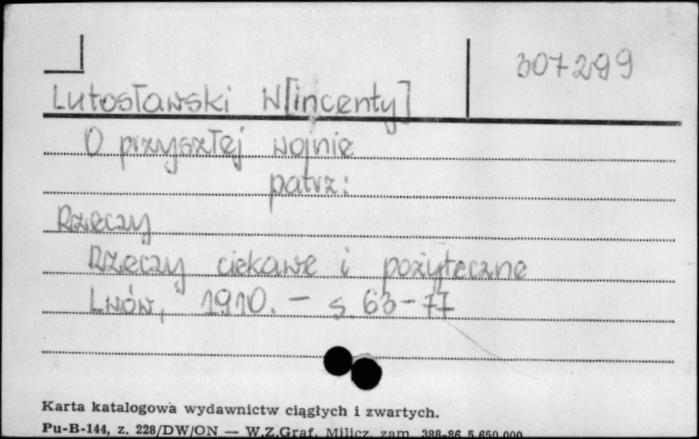 307299
Lutosławski W[incenty]
O przyszłej wojnie
patrz:
Rzeczy
Rzeczy ciekawe i pożyteczne
Lwów, 1910. – s. 63–77
Karta katalogowa wydawnictw ciągłych i zwartych.
Pu-B-144, z. 228/DW/ON — W.Z.Graf. Milicz, zam. 388-86 5.650.000